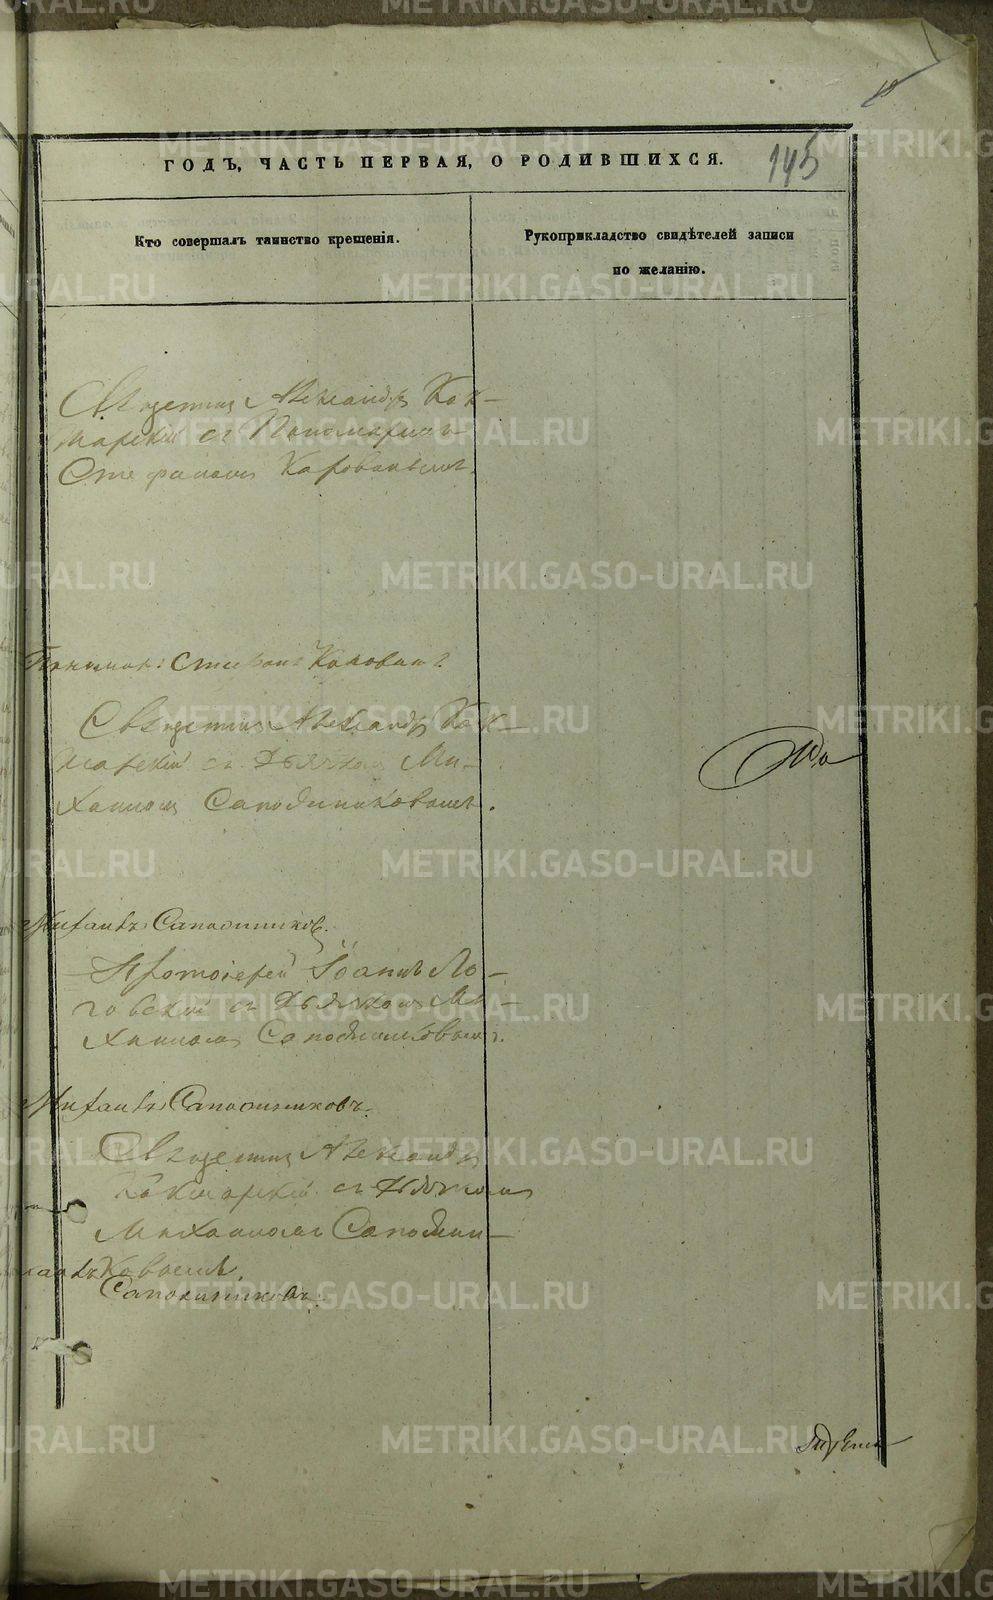 ГОДЪ, ЧАСТЬ ПЕРВАЯ, О РОДИВШИХСЯ.
145
Кто совершалъ таинство крещенія.
Рукоприкладство свидѣтелей записи
по желанію.
Священникъ Александръ Кок-
шарскій съ Пономаремъ
Стефаномъ Короваевымъ.
Священникъ Александръ Кок-
шарскій съ Дьячкомъ Ми-
хаиломъ Сапожниковымъ.
Михаилъ Сапожниковъ.
Протоіерей Іоаннъ Ло-
говскій съ Дьячкомъ Ми-
хаиломъ Сапожниковымъ.
Михаилъ Сапожниковъ.
Священникъ Александръ
Кокшарскій съ Дьячкомъ
Михаиломъ Сапожни-
ковымъ.
Сапожниковъ.
METRIKI.GASO-URAL.RU